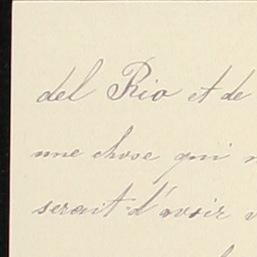 del Rio et de
une chose qui
serait-d'avoir